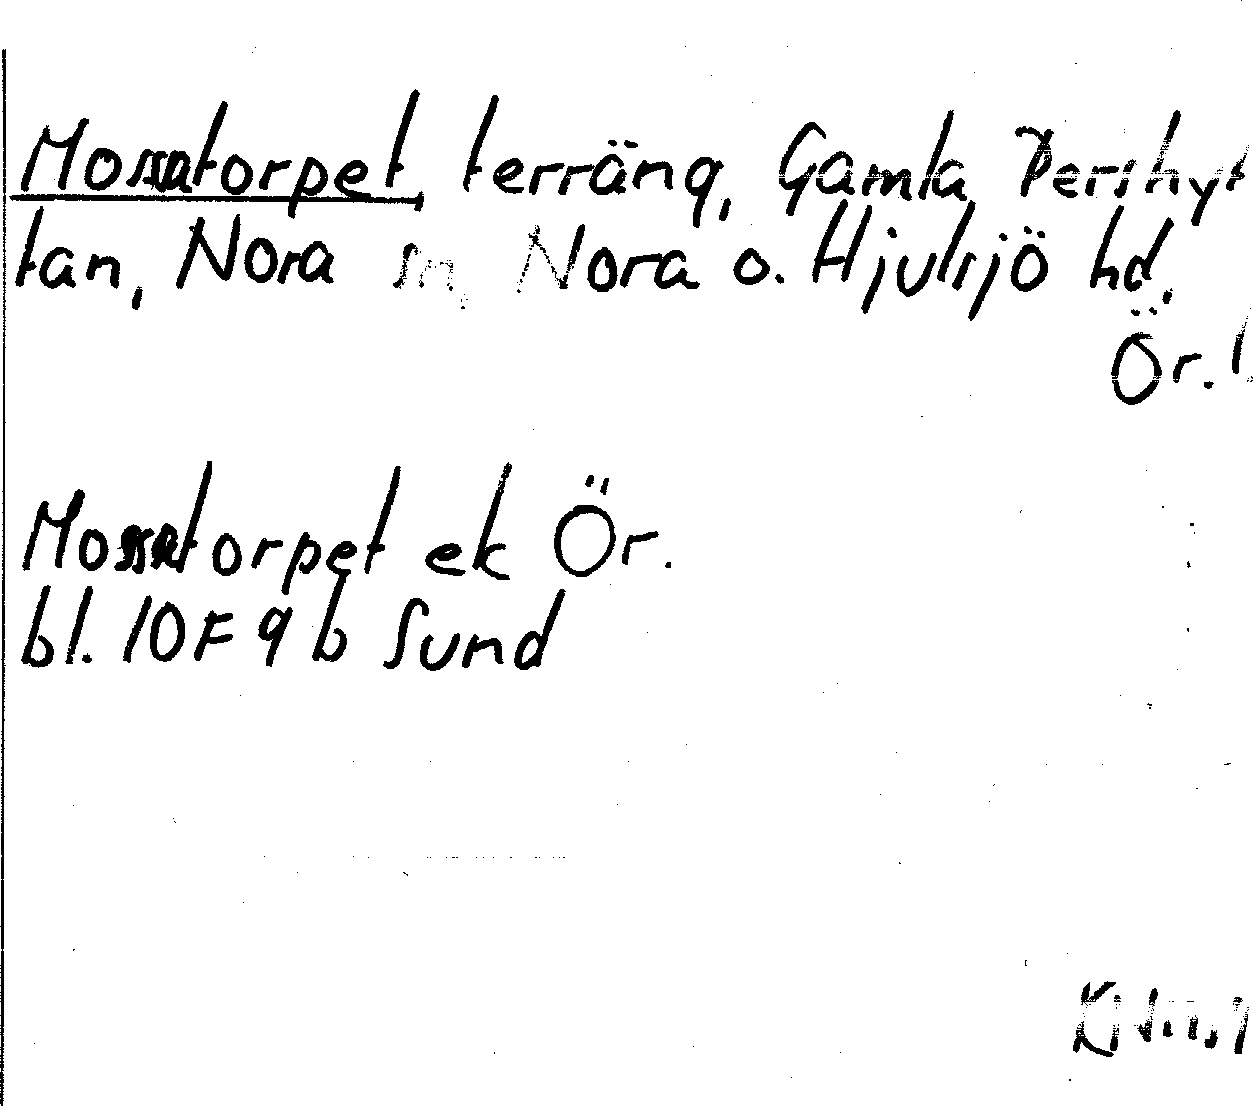 Mossatorpet, terräng, Gamla Pershyt
tan, Nora sn, Nora o. Hjulsjö hd,
Ör. l.
Mossatorpet ek Ör.
bl. 10F 9b Sund